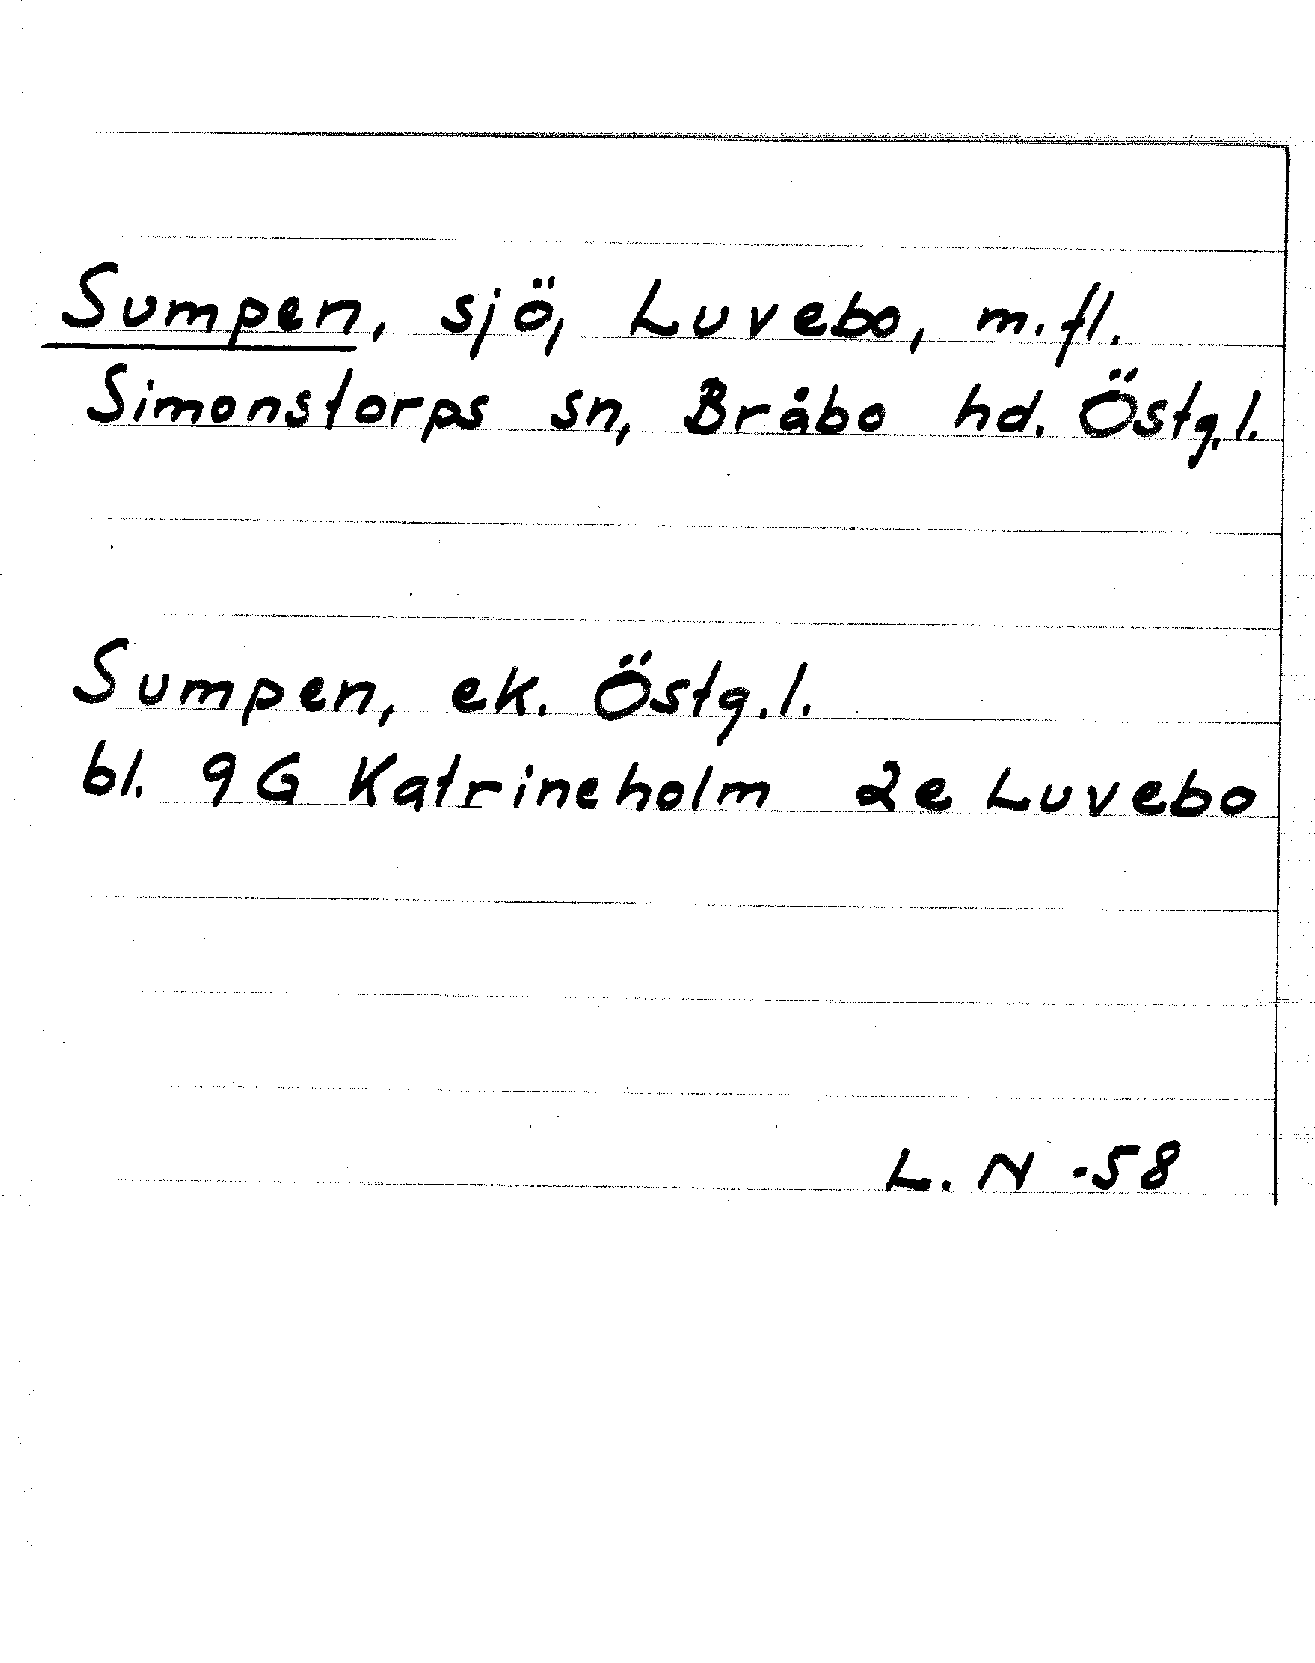 Sumpen, sjö, Luvebo, m.fl.
Simonstorps sn, Bråbo hd. Östg.l.
Sumpen, ek. Östg.l.
bl. 9G Katrineholm 2e Luvebo
L. N -58